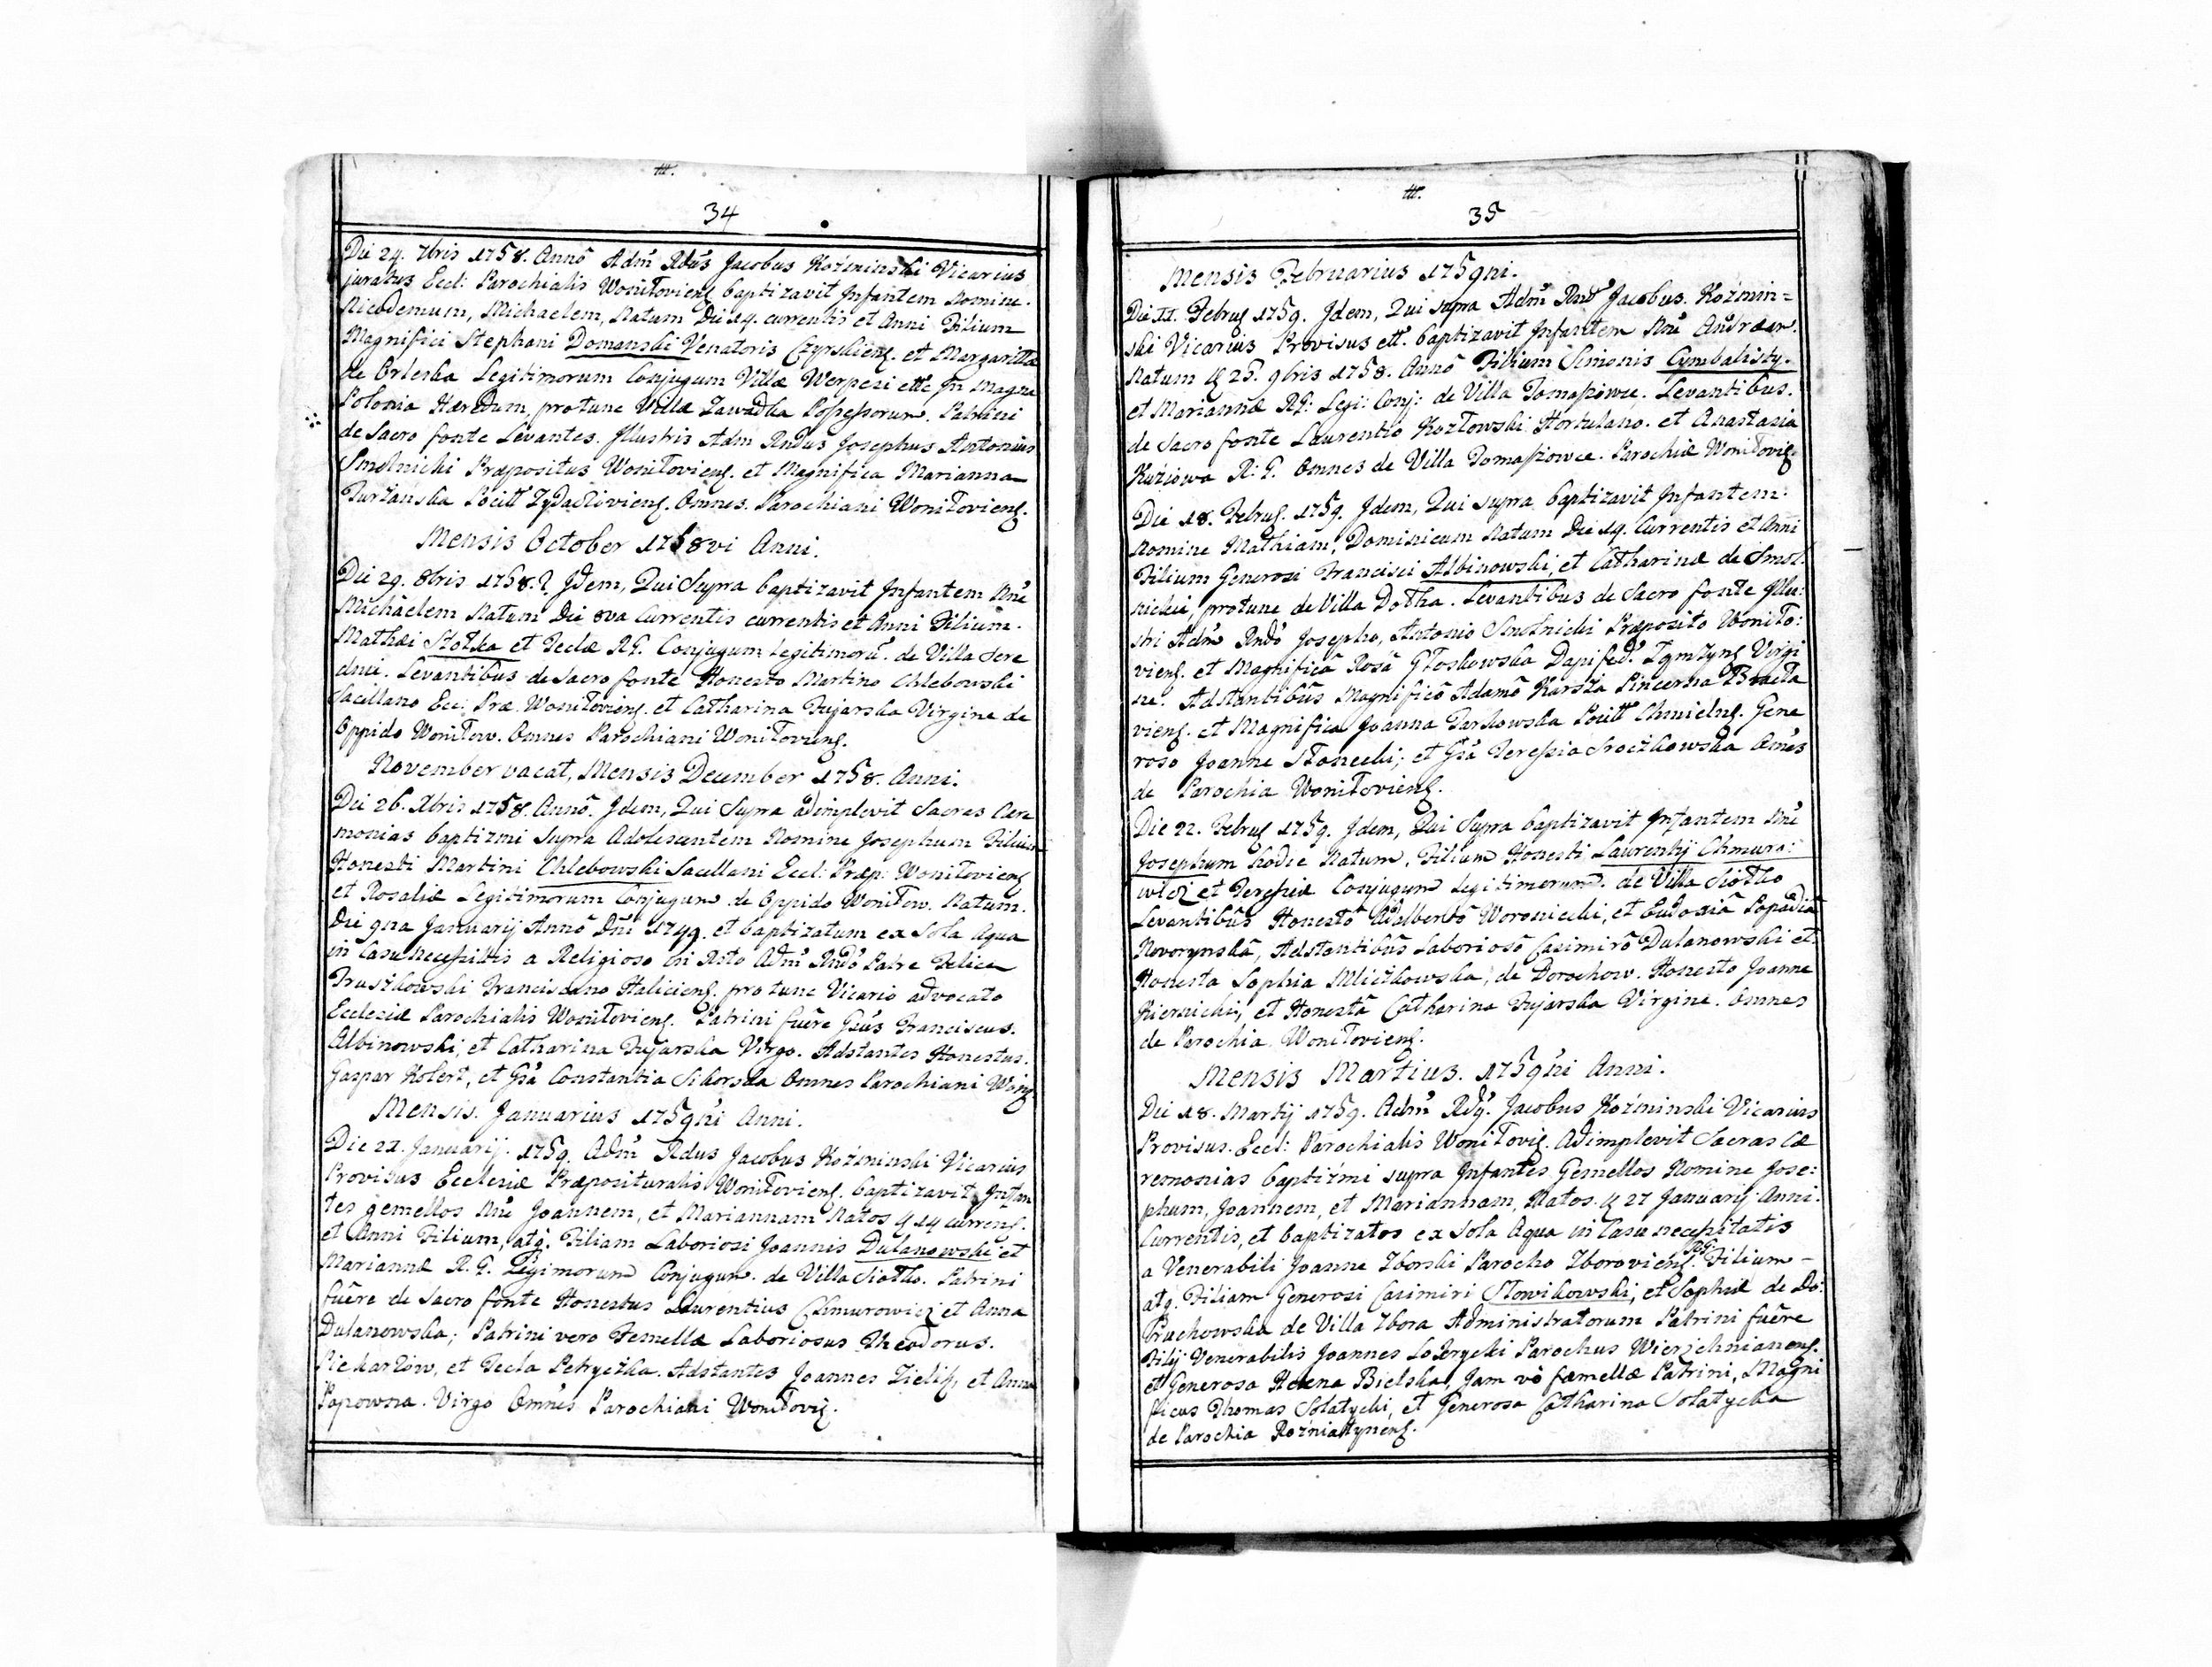 34
Die 24. 7bris 1758. Annô Adm̃ Rdus Jacobus Koźminski Vicarius
juratus Eccl: Parochialis Woniłoviens. baptizavit Infantem Nomine.
Nicodemum, Michaelem, Natum Die 14. currentis et Anni Filium
Magnifici Stephani Domanski Venatoris Czyrskiens. et Margaritta
de Orleska Legitimorum Conjugum Villæ Werpeci ettc in Magna
Polonia Hæredum, protunc Villæ Zawadka Possessorum. Patrini
de Sacro fonte Levantes. Illustris Adm Rndus Josephus Antonius
Smolnicki Præpositus Woniłoviens. et Magnifica Marianna
Turżanska Pocill Zydacżoviens. Omnes. Parochiani Woniłoviens.
Mensis October 1758vi Anni.
Die 29. 8bris 1758. Idem, Qui Supra baptizavit Infantem Nñe
Michaelem Natum Die 8va Currentis currentis et Anni Filium.
Mathæi Stotka et Teclæ R.G. Conjugum Legitimorũ. de Villa Sere
dnii. Levantibus de Sacro fonte Honesto Martino Chlebowski
Sacellano Ecc: Præ. Woniłoviens. et Catharina Fujarska Virgine de
Oppido Woniłow. Omnes Parochiani Woniłoviens.
November vacat, Mensis December 1758. Anni.
Die 26. Xbris 1758. Annô. Idem, Qui Supra adimplevit Sacras Cære
monias baptizmi Supra Adolescentem Nomine Josephum Filium
Honesti Martini Chlebowski Sacellani Eccl: Præp: Woniłoviens
et Rosaliæ Legitimorum Conjugum de Oppido Woniłow. Natum.
Die 9na Januarij Annô Dñi 1749. et baptizatum ex Sola Aqua
in Casu necessitis a Religioso in Xsto Adm̃ Rndô Patre Felice
Truszkowski Franciscano Haliciens. pro tunc Vicario advocato
Ecclesiæ Parochialis Woniłoviens. Patrini fuêre Gsus Franciscus.
Albinowski, et Catharina Fujarska Virgo. Adstantes Honestus.
Gaspar Kolert, et Gsa Constantia Sikorska Omnes Parochiani Wonig
Mensis. Januarius 1759ni Anni.
Die 21. Januarij. 1759. Adm̃ Rdus Jacobus Koźminski Vicarius
Provisus Ecclesiæ Præposituralis Woniłoviens. baptizavit Infan
tes gemellos Nñe Joannem, et Mariannam Natos 14 currens.
et Anni Filium, atq. Filiam Laboriosi Joannis Dulanowski et
Mariannæ R.G. Legimorum Conjugum. de Villa Siołko. Patrini
fuêre de Sacro fonte Honestus Laurentius Chmurowicz et Anna
Dulanowska; Patrini vero Femellæ Laboriosus Theodorus.
Piekarżow, et Tecla Petryczka. Adstantes Joannes Zielik, et Anna
Popowna. Virgo Omnes Parochiani Woniłovig.
35
Mensis Februarius 1759ni.
Die 11. Februs 1759. Idem, Qui supra Adm̃ Rnds Jacobus. Koźmin=
ski Vicarius Provisus ett. baptizavit Infantem Nñe Andræam.
Natum 25. 9bris 1758. Annô Filium Simonis Cymbalisty.
et Mariannæ RG: Legi: Conj: de Villa Tomaszowce. Levantibus.
de Sacro fonte Laurentio Kozłowski Hortulano. et Anastasia
Kuziowa R: G. Omnes de Villa Tomaszowce. Parochiæ Woniłovig.
Die 18. Februs. 1759. Idem, Qui supra baptizavit Infantem:
Nomine Mathiam, Dominicum Natum Die 14. Currentis et Anni
Filium Generosi Francisci Albinowski, et Catharinæ de Smol:
nickii, protunc de Villa Dołha. Levantibus de Sacro fonte Illu:
stri Adm̃ Rndo Josepho, Antonio Smolnicki Præposito Woniło:
viens. et Magnificâ Rosâ Głoskowska Dapifed. Virgi
ne. Adstantibus Magnificô Adamô Karsza Pincerna Bracla
viens. et Magnifica Joanna Tarkowska Pocill Chmielns. Gene
roso Joanne Słonecki; et Gsa Teressia Sroczkowska Omes
de Parochia Woniłoviens.
Die 22. Februs 1759. Idem, Qui Supra baptizavit Infantem Nñe
Josephum hodie Natum. Filium Honesti Laurentij Chmuro:
wicz et Teressiæ Conjugum Legitimorum. de Villa Siołko
Levantibus Honestô Adalbertô Woronicki, et Eudoxiâ Popadiâ
Novorynskâ, Adstantibus Laboriosô Casimirô Dulanowski et
Honesta Sophia Mliczkowska, de Dorochow. Honesto Joanne
Kiernicki, et Honestâ Catharina Fujarska Virgine. Omnes
de Parochia Woniłoviens.
Mensis Martius. 1759ni Anni.
Die 18. Martij 1759. Adm̃ Rdq. Jacobus Koźminski Vicarius
Provisus. Eccl: Parochialis Woniłovig. Adimplevit Sacras Cæ
remonias baptizmi supra Infantes Gemellos Nomine Jose:
phum, Joannem, et Mariannam, Natos. 27 Januarij Anni.
Currentis, et baptizatos ex Sola Aqua in Casu necessitatis
a Venerabili Joanne Zborski Parocho Zboroviens. RG. Filium -
atq. Filiam Generosi Casimiri Słowikowski, et Sophiæ de Do:
bruchowska de Villa Zbora Administratorum Patrini fuêre
Filij Venerabilis Joannes Łozerycki Parochus Wierzchnianens.
et Generosa Helena Bielska, Jam vô fæmellæ Patrini, Magni
ficus Thomas Sołatycki, et Generosa Catharina Sołatycka
de Parochia Rożniattynens.